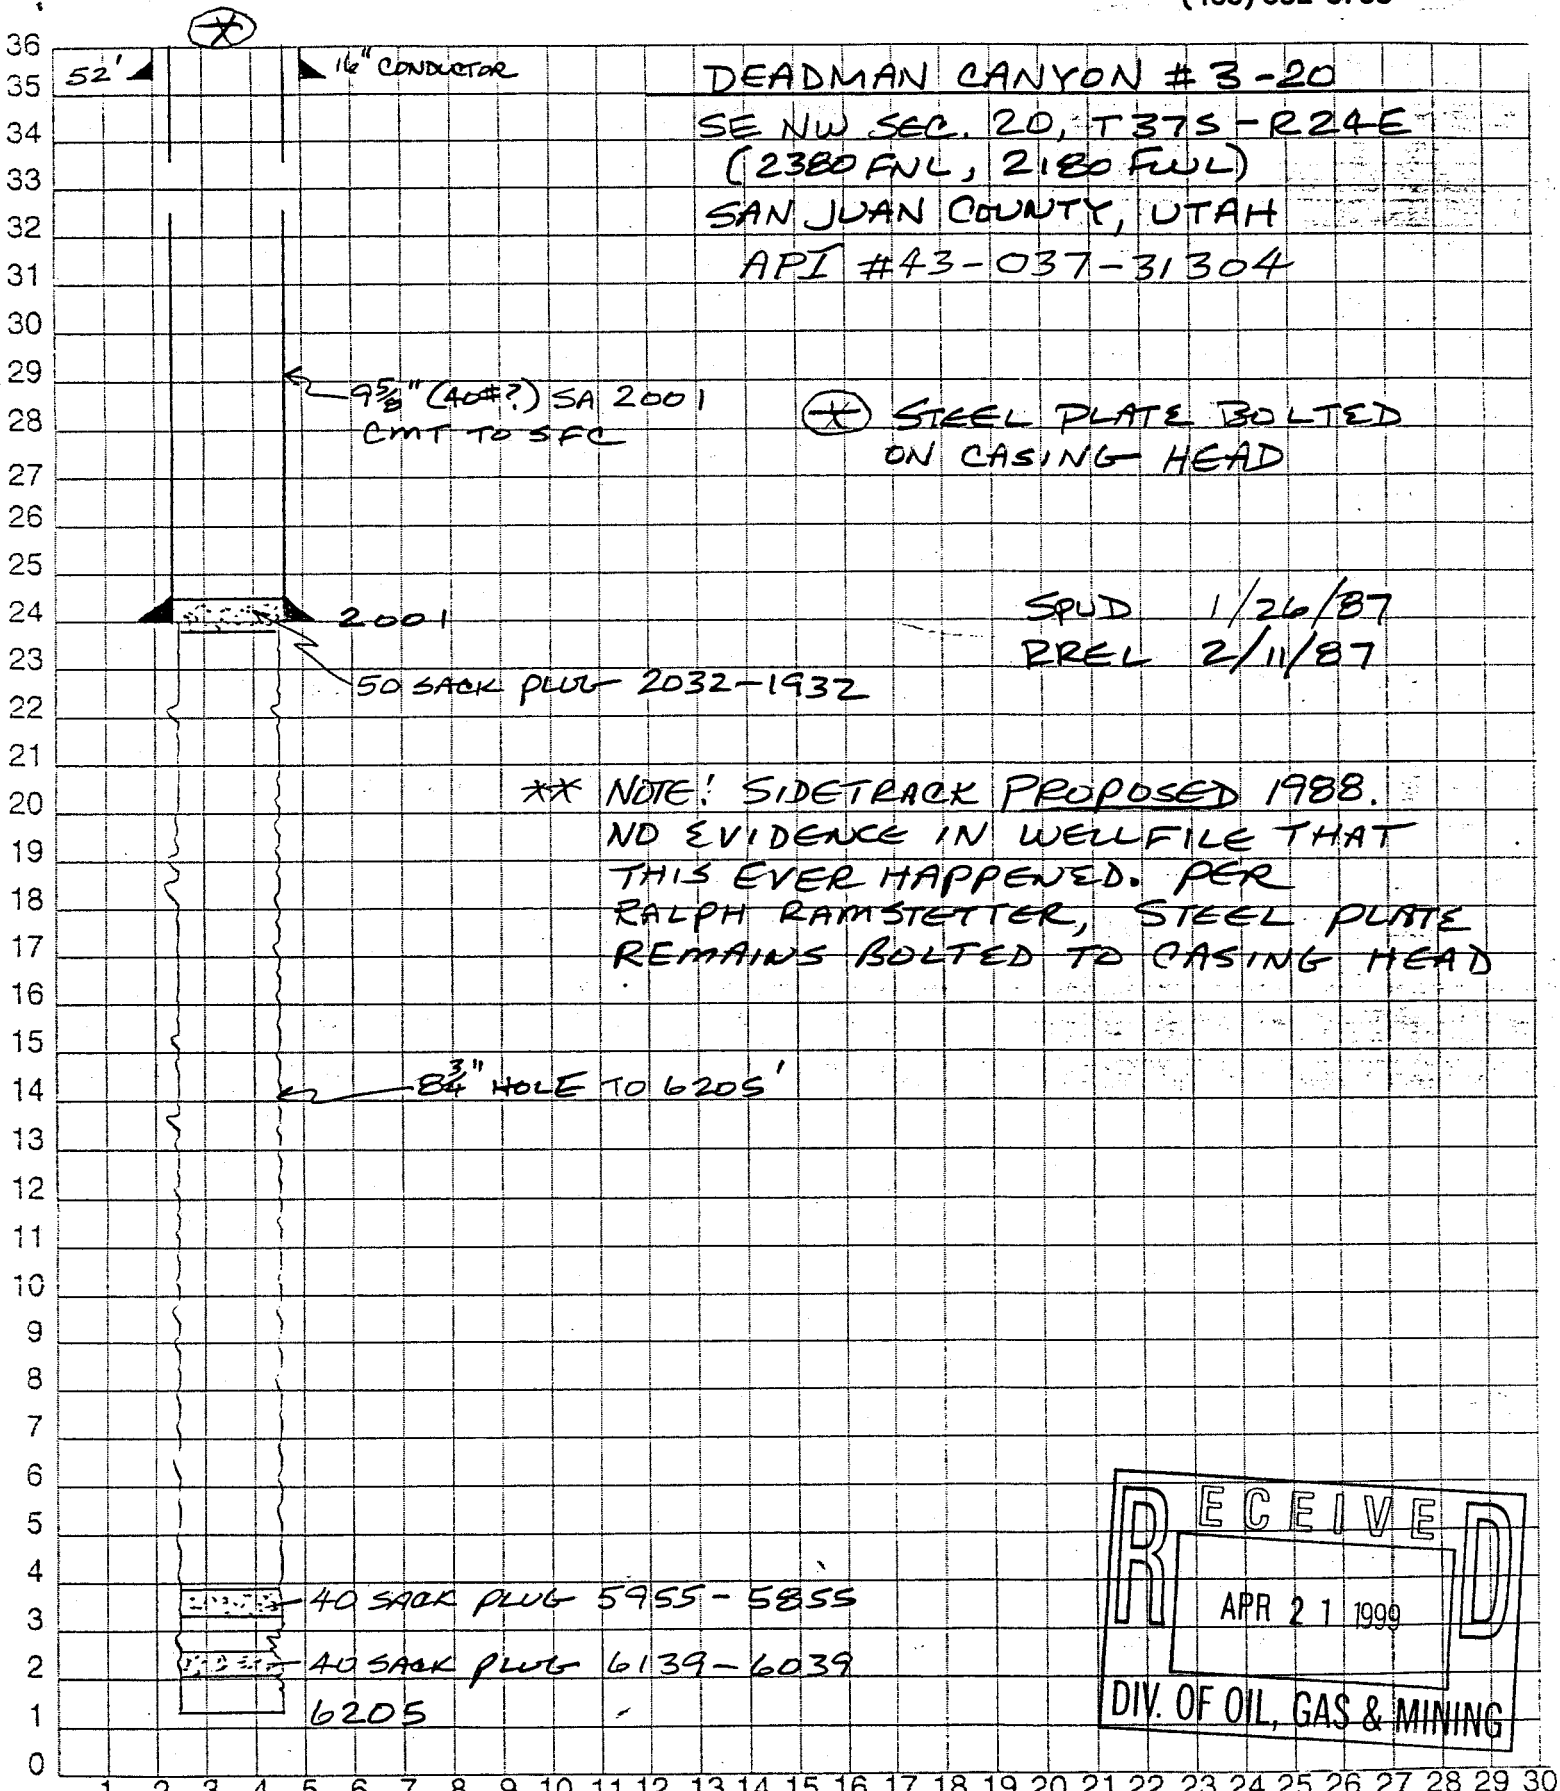 36
35
34
33
32
31
30
29
28
27
26
25
24
23
22
21
20
19
18
17
16
15
14
13
12
11
10
9
8
7
6
5
4
3
2
1
0
52'
16" CONDUCTOR
DEADMAN CANYON # 3-20
SE NW SEC. 20, T37S-R24E
(2380 FNL, 2180 FWL)
SAN JUAN COUNTY, UTAH
API #43-037-31304
9 5/8" (40#?) SA 2001
CMT TO SFC
* STEEL PLATE BOLTED
ON CASING HEAD
2001
50 SACK PLUG 2032-1932
SPUD 1/26/87
RREL 2/11/87
** NOTE! SIDETRACK PROPOSED 1988.
NO EVIDENCE IN WELLFILE THAT
THIS EVER HAPPENED. PER
RALPH RAMSTETTER, STEEL PLATE
REMAINS BOLTED TO CASING HEAD
8 3/4" HOLE TO 6205'
40 SACK PLUG 5955-5855
40 SACK PLUG 6139-6039
6205
RECEIVED
APR 21 1999
DIV. OF OIL, GAS & MINING
1 2 3 4 5 6 7 8 9 10 11 12 13 14 15 16 17 18 19 20 21 22 23 24 25 26 27 28 29 30